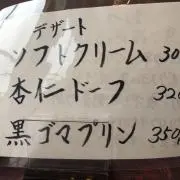 デザート
ソフトクリーム 30
杏仁ドーフ 320
黒ゴマプリン 350